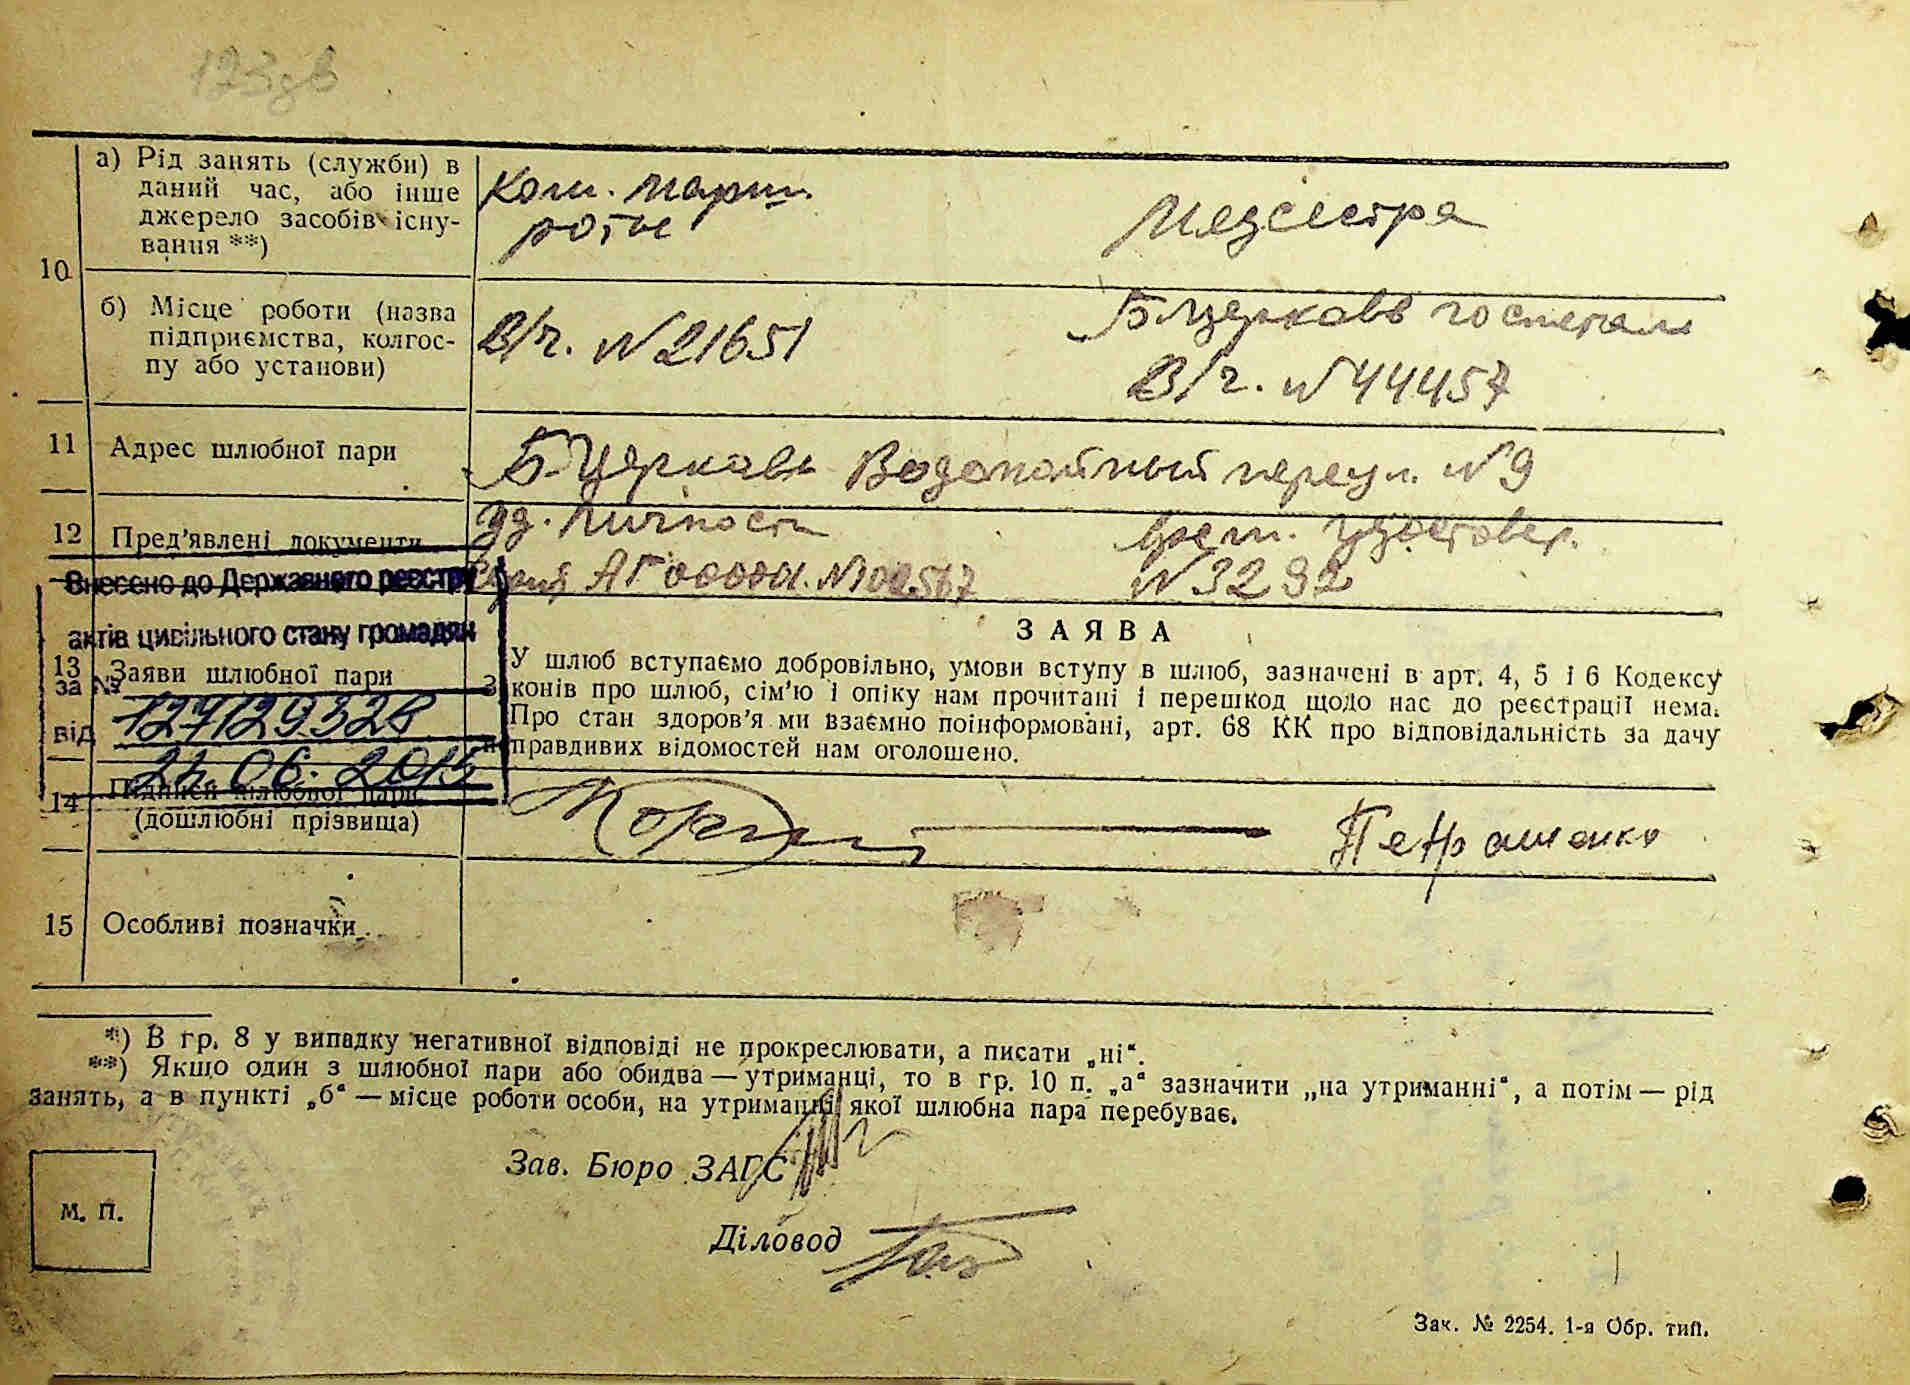 123зв
10
а) Рід занять (служби) в
даний час, або інше
джерело засобів існу-
вання **)
Ком. марш.
роты
Медсестра
б) Місце роботи (назва
підприємства, колгос-
пу або установи)
В/ч. № 21651
Б-Церковь госпеталь
В/ч. № 44457
11 Адрес шлюбної пари
Б-Церковь Водопойный переул. № 9
12 Пред'явлені документи
Уд. личности
Серия АГ № 002567
Врем. удостовер.
№ 3292
Внесено до Державного реєстру
актів цивільного стану громадян
за № 127129328
від 24.06.2015
13 Заяви шлюбної пари
ЗАЯВА
У шлюб вступаємо добровільно, умови вступу в шлюб, зазначені в арт. 4, 5 і 6 Кодексу
законів про шлюб, сім'ю і опіку нам прочитані і перешкод щодо нас до реєстрації нема.
Про стан здоров'я ми взаємно поінформовані, арт. 68 КК про відповідальність за дачу
неправдивих відомостей нам оголошено.
14 Підписи шлюбної пари
(дошлюбні прізвища)
Петрашенко
15 Особливі позначки
*) В гр. 8 у випадку негативної відповіді не прокреслювати, а писати „ні“.
**) Якщо один з шлюбної пари або обидва — утриманці, то в гр. 10 п. „а“ зазначити „на утриманні“, а потім — рід
занять, а в пункті „б“ — місце роботи особи, на утриманні якої шлюбна пара перебуває.
Зав. Бюро ЗАГС
М. П.
Діловод
Зак. № 2254. 1-я Обр. тип.